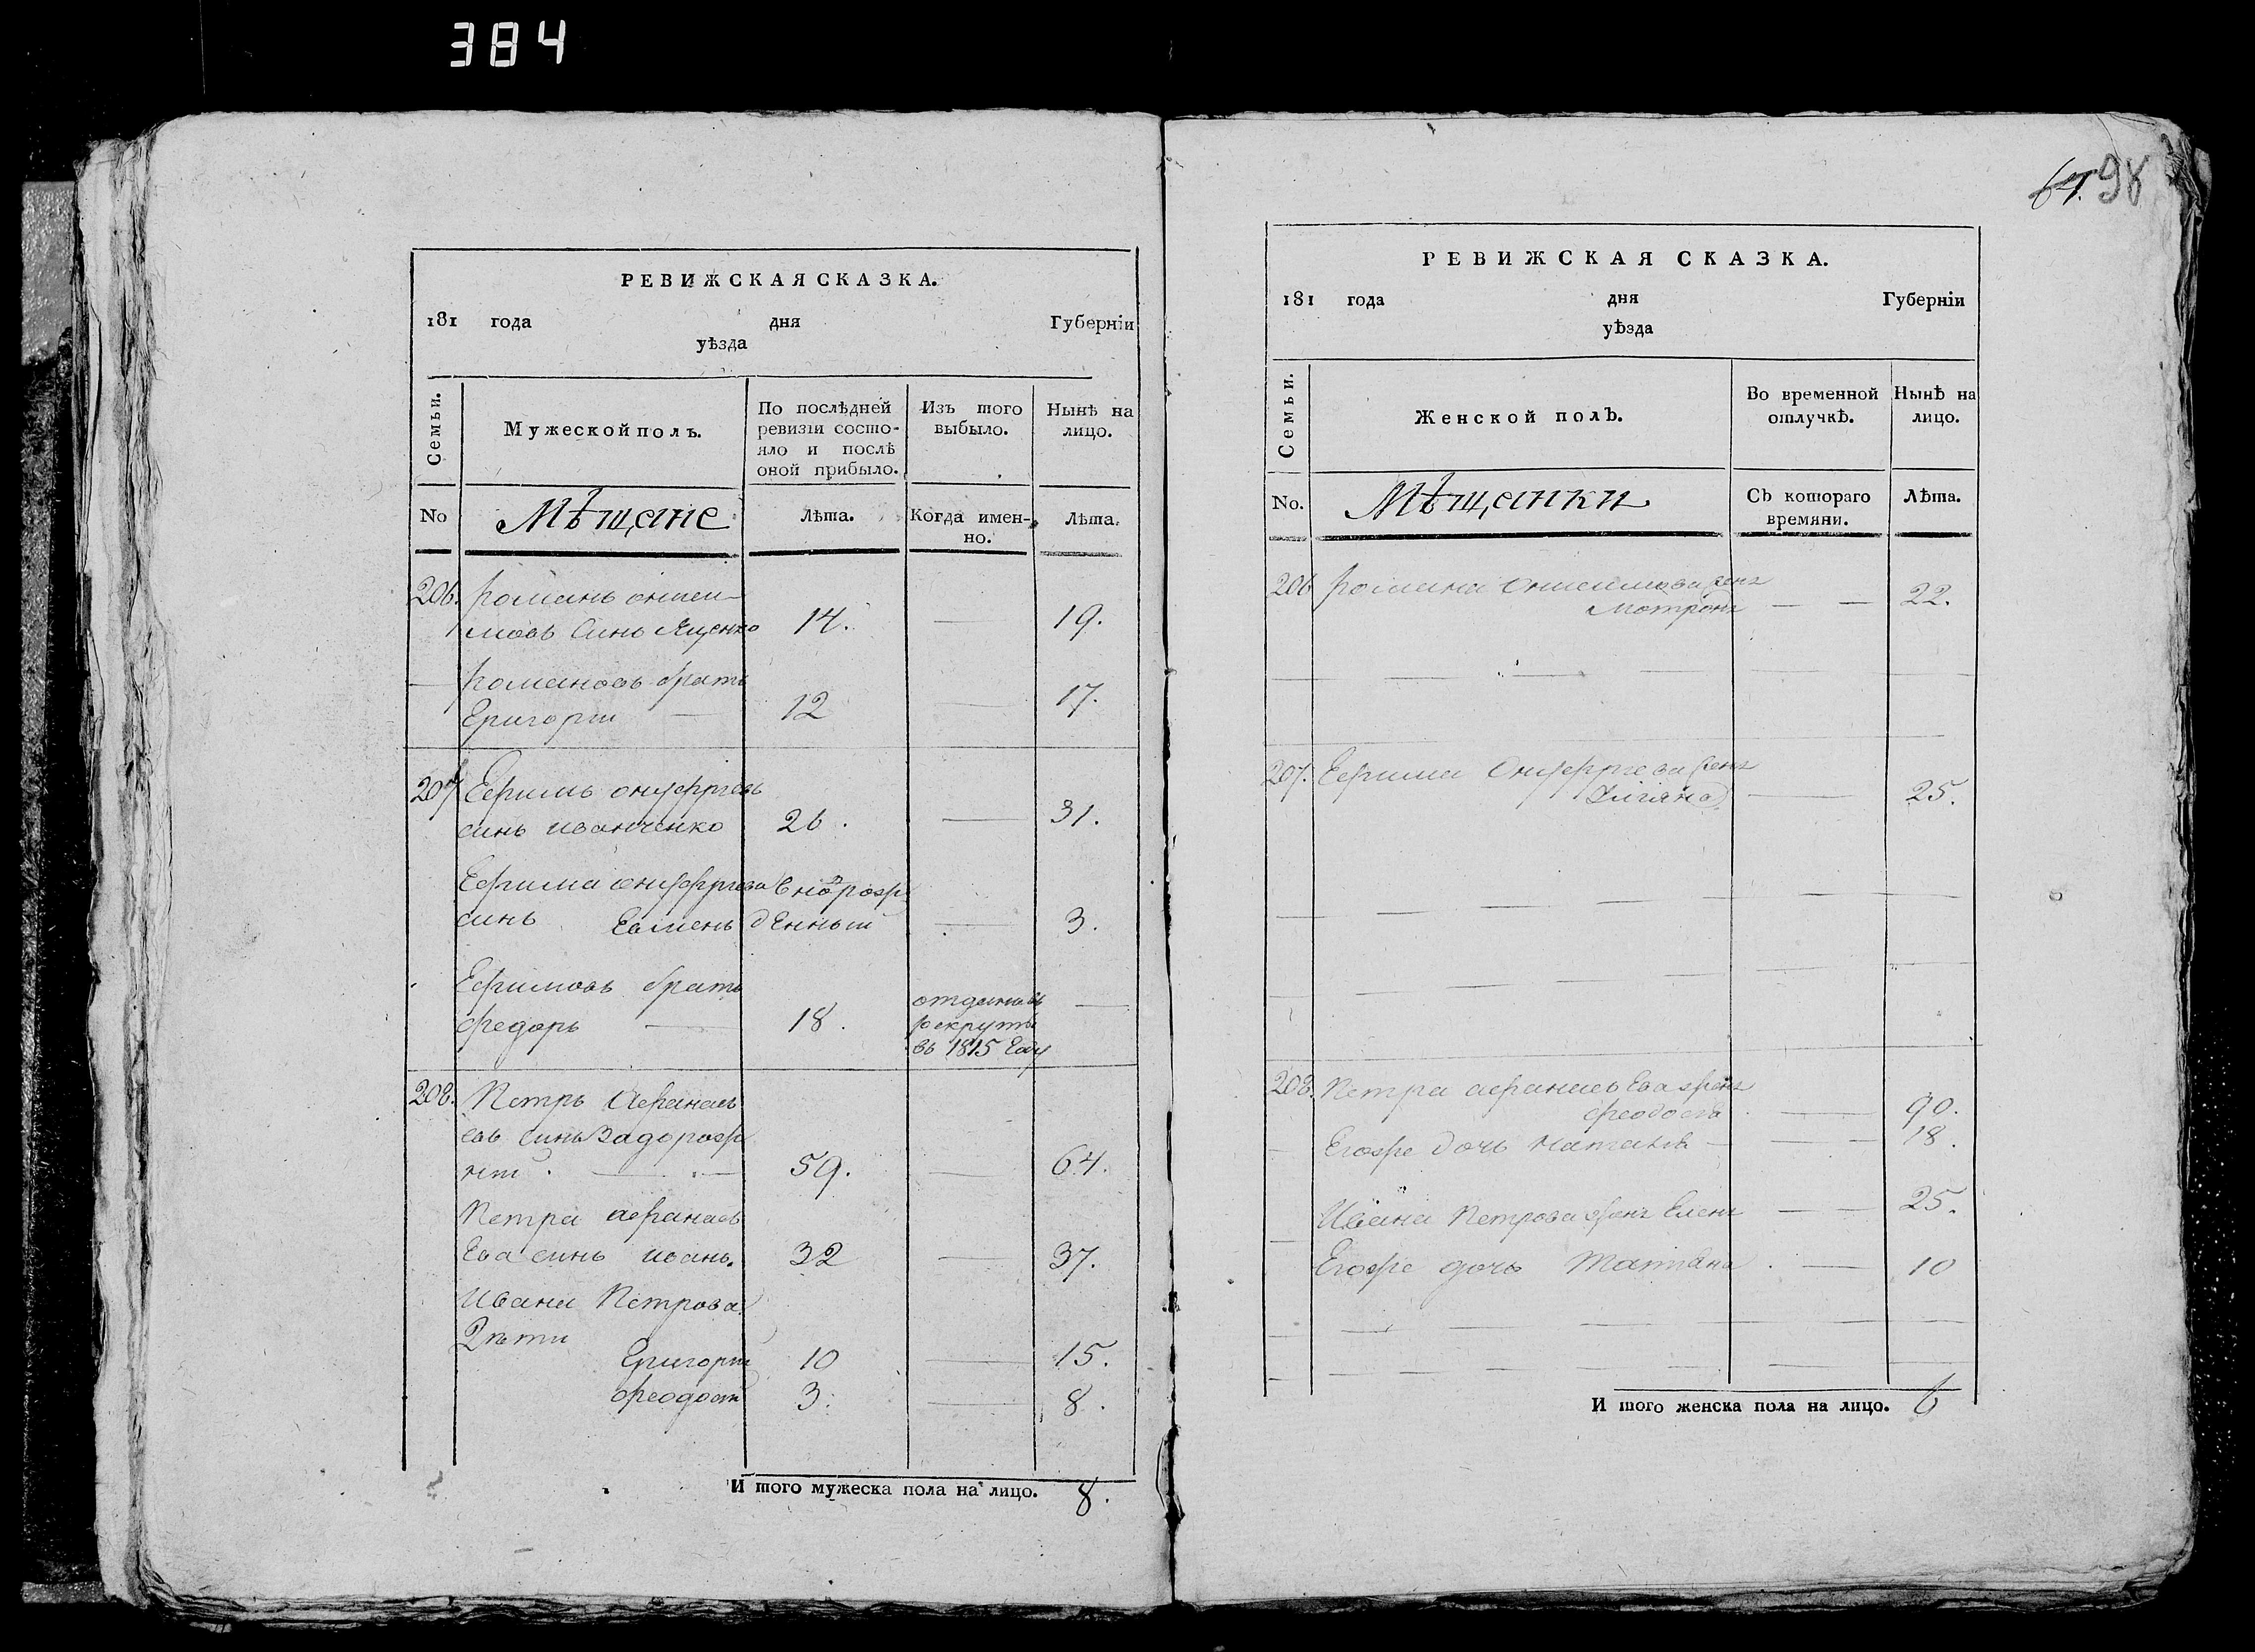 384
РЕВИЖСКАЯ СКАЗКА.
181 года дня Губерніи
уѣзда
Семьи.
Мужеской полъ.
По послѣдней ревизіи состо-
яло и послѣ
оной прибыло.
Изъ того
выбыло.
Нынѣ на
лицо.
No
Мѣщане
Лѣта.
Когда имен-
но.
Лѣта.
206. Романъ Ониси-
мовъ синъ Яценко 14. — 19.
— Романовъ братъ
Григорій — 12 — 17.
207 Ефимъ Онуфріевъ
синъ Иванченко 26. — 31.
Ефима Онуфріева Внов рож
синъ Евмень денный — 3.
Ефимовъ братъ
Федоръ — 18. отданъ въ
рекруты
въ 1815 Году —
208. Петръ Афанась
евъ синъ Задорож
ній — 59. — 64.
Петра Афанась
Ева синъ Иванъ. 32 — 37.
Ивана Петрова
Дѣти
Григорій 10 — 15.
Феодосій 3. — 8.
И того мужеска пола на лицо. 8.
98
РЕВИЖСКАЯ СКАЗКА.
181 года дня Губерніи
уѣзда
Семьи.
Женской полъ.
Во временной
отлучкѣ.
Нынѣ на
лицо.
No.
Мѣщанки
Съ котораго
времяни.
Лѣта.
206 Романа Онисимова жена
Мотрона — — 22.
207. Ефима Онуфріева жена
Улiяна — 25.
208. Петра Афанасьева жена
Феодосія — 90.
Егоже дочь Наталія — — — 18.
Ивана Петрова жена Елена — — 25.
Егоже дочь Татiана — 10
И того женска пола на лицо. 6